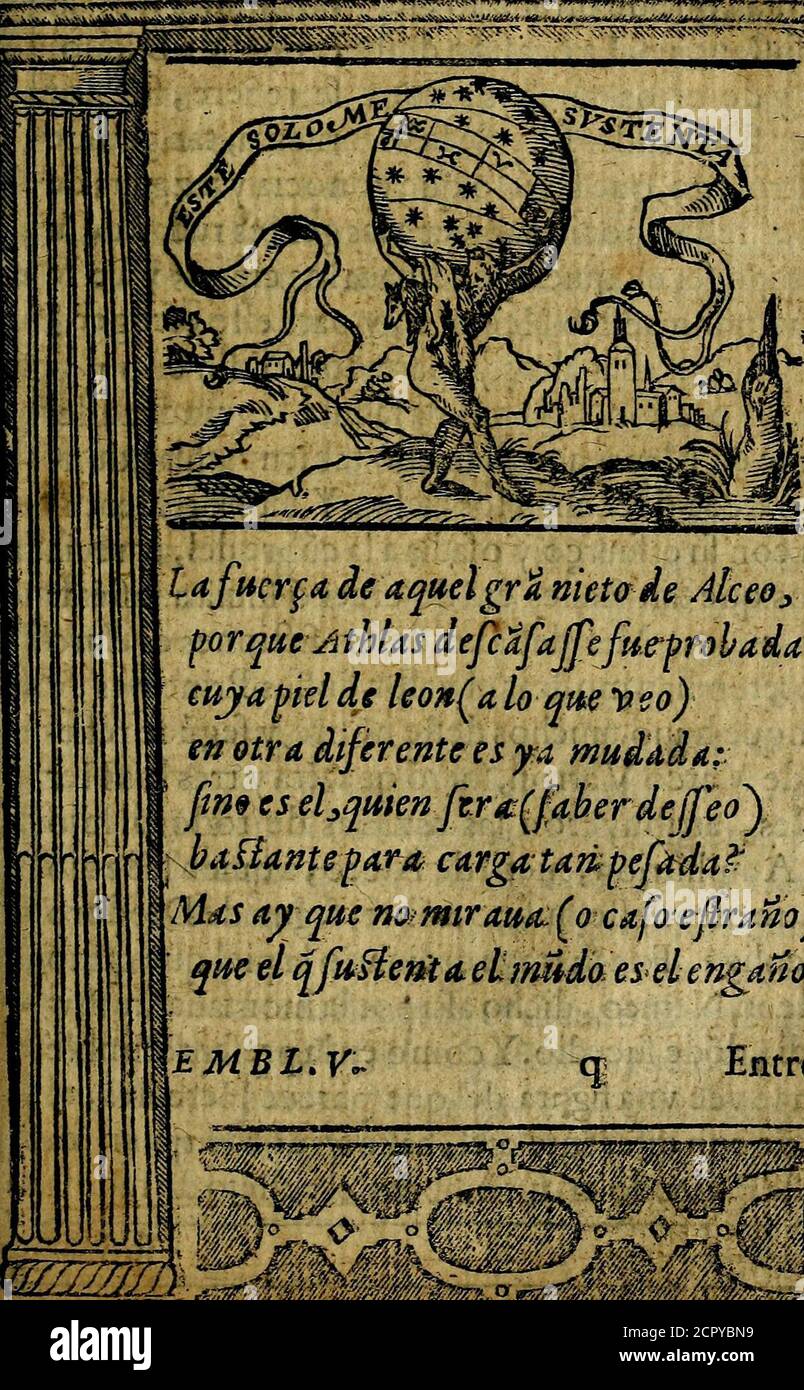 ESTE SOLO ME SVSTENTA
La fuerça de aquel grã nieto de Alceo,
porque Athlas deſcãſaſſe fue probada
cuya piel de leon (a lo que veo)
en otra diferente es ya mudada:
ſino es el, quien ſera (ſaber deſſeo)
baſtante para carga tan peſada?
Mas ay que no miraua (o caſo eſtraño)
que el q̃ ſuſtenta el mũdo es el engaño
EMBL. V. q Entre
alamy
Image ID: 2CPYBN9
www.alamy.com